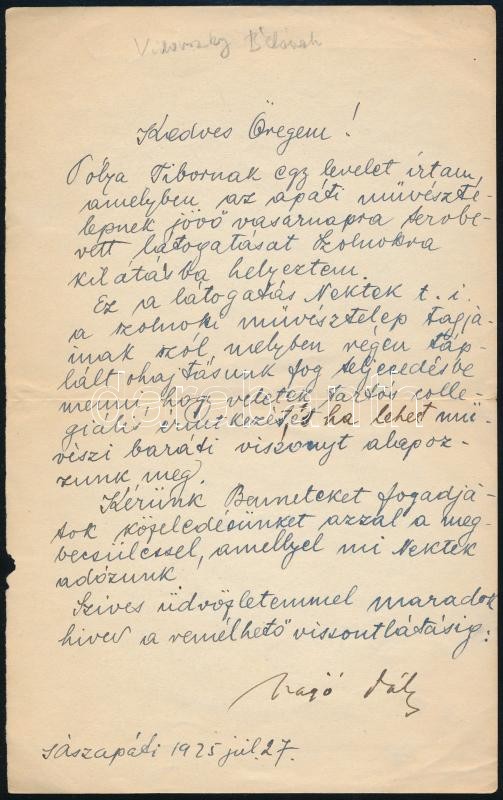 Vidovszky Bélának
Kedves Öregem!
Pólya Tibornak egy levelet írtam,
amelyben az apáti művészte-
lepnek jövő vasárnapra tervbe-
vett látogatását Szolnokra
kilátásba helyeztem.
Ez a látogatás Nektek t. i.
a szolnoki művésztelep tagjá-
inak szól, melyben régen táp-
lált óhajtásunk fog teljesedésbe
menni, hogy veletek tartós colle-
giális érintkezést, és ha lehet mű-
vészi baráti viszonyt alapoz-
zunk meg.
Kérünk Benneteket fogadjá-
tok közeledésünket azzal a meg-
becsüléssel, amellyel mi Nektek
adózunk.
Szives üdvözletemmel maradok
hived a remélhető viszontlátásig:
Jászapáti 1925 júl. 27.